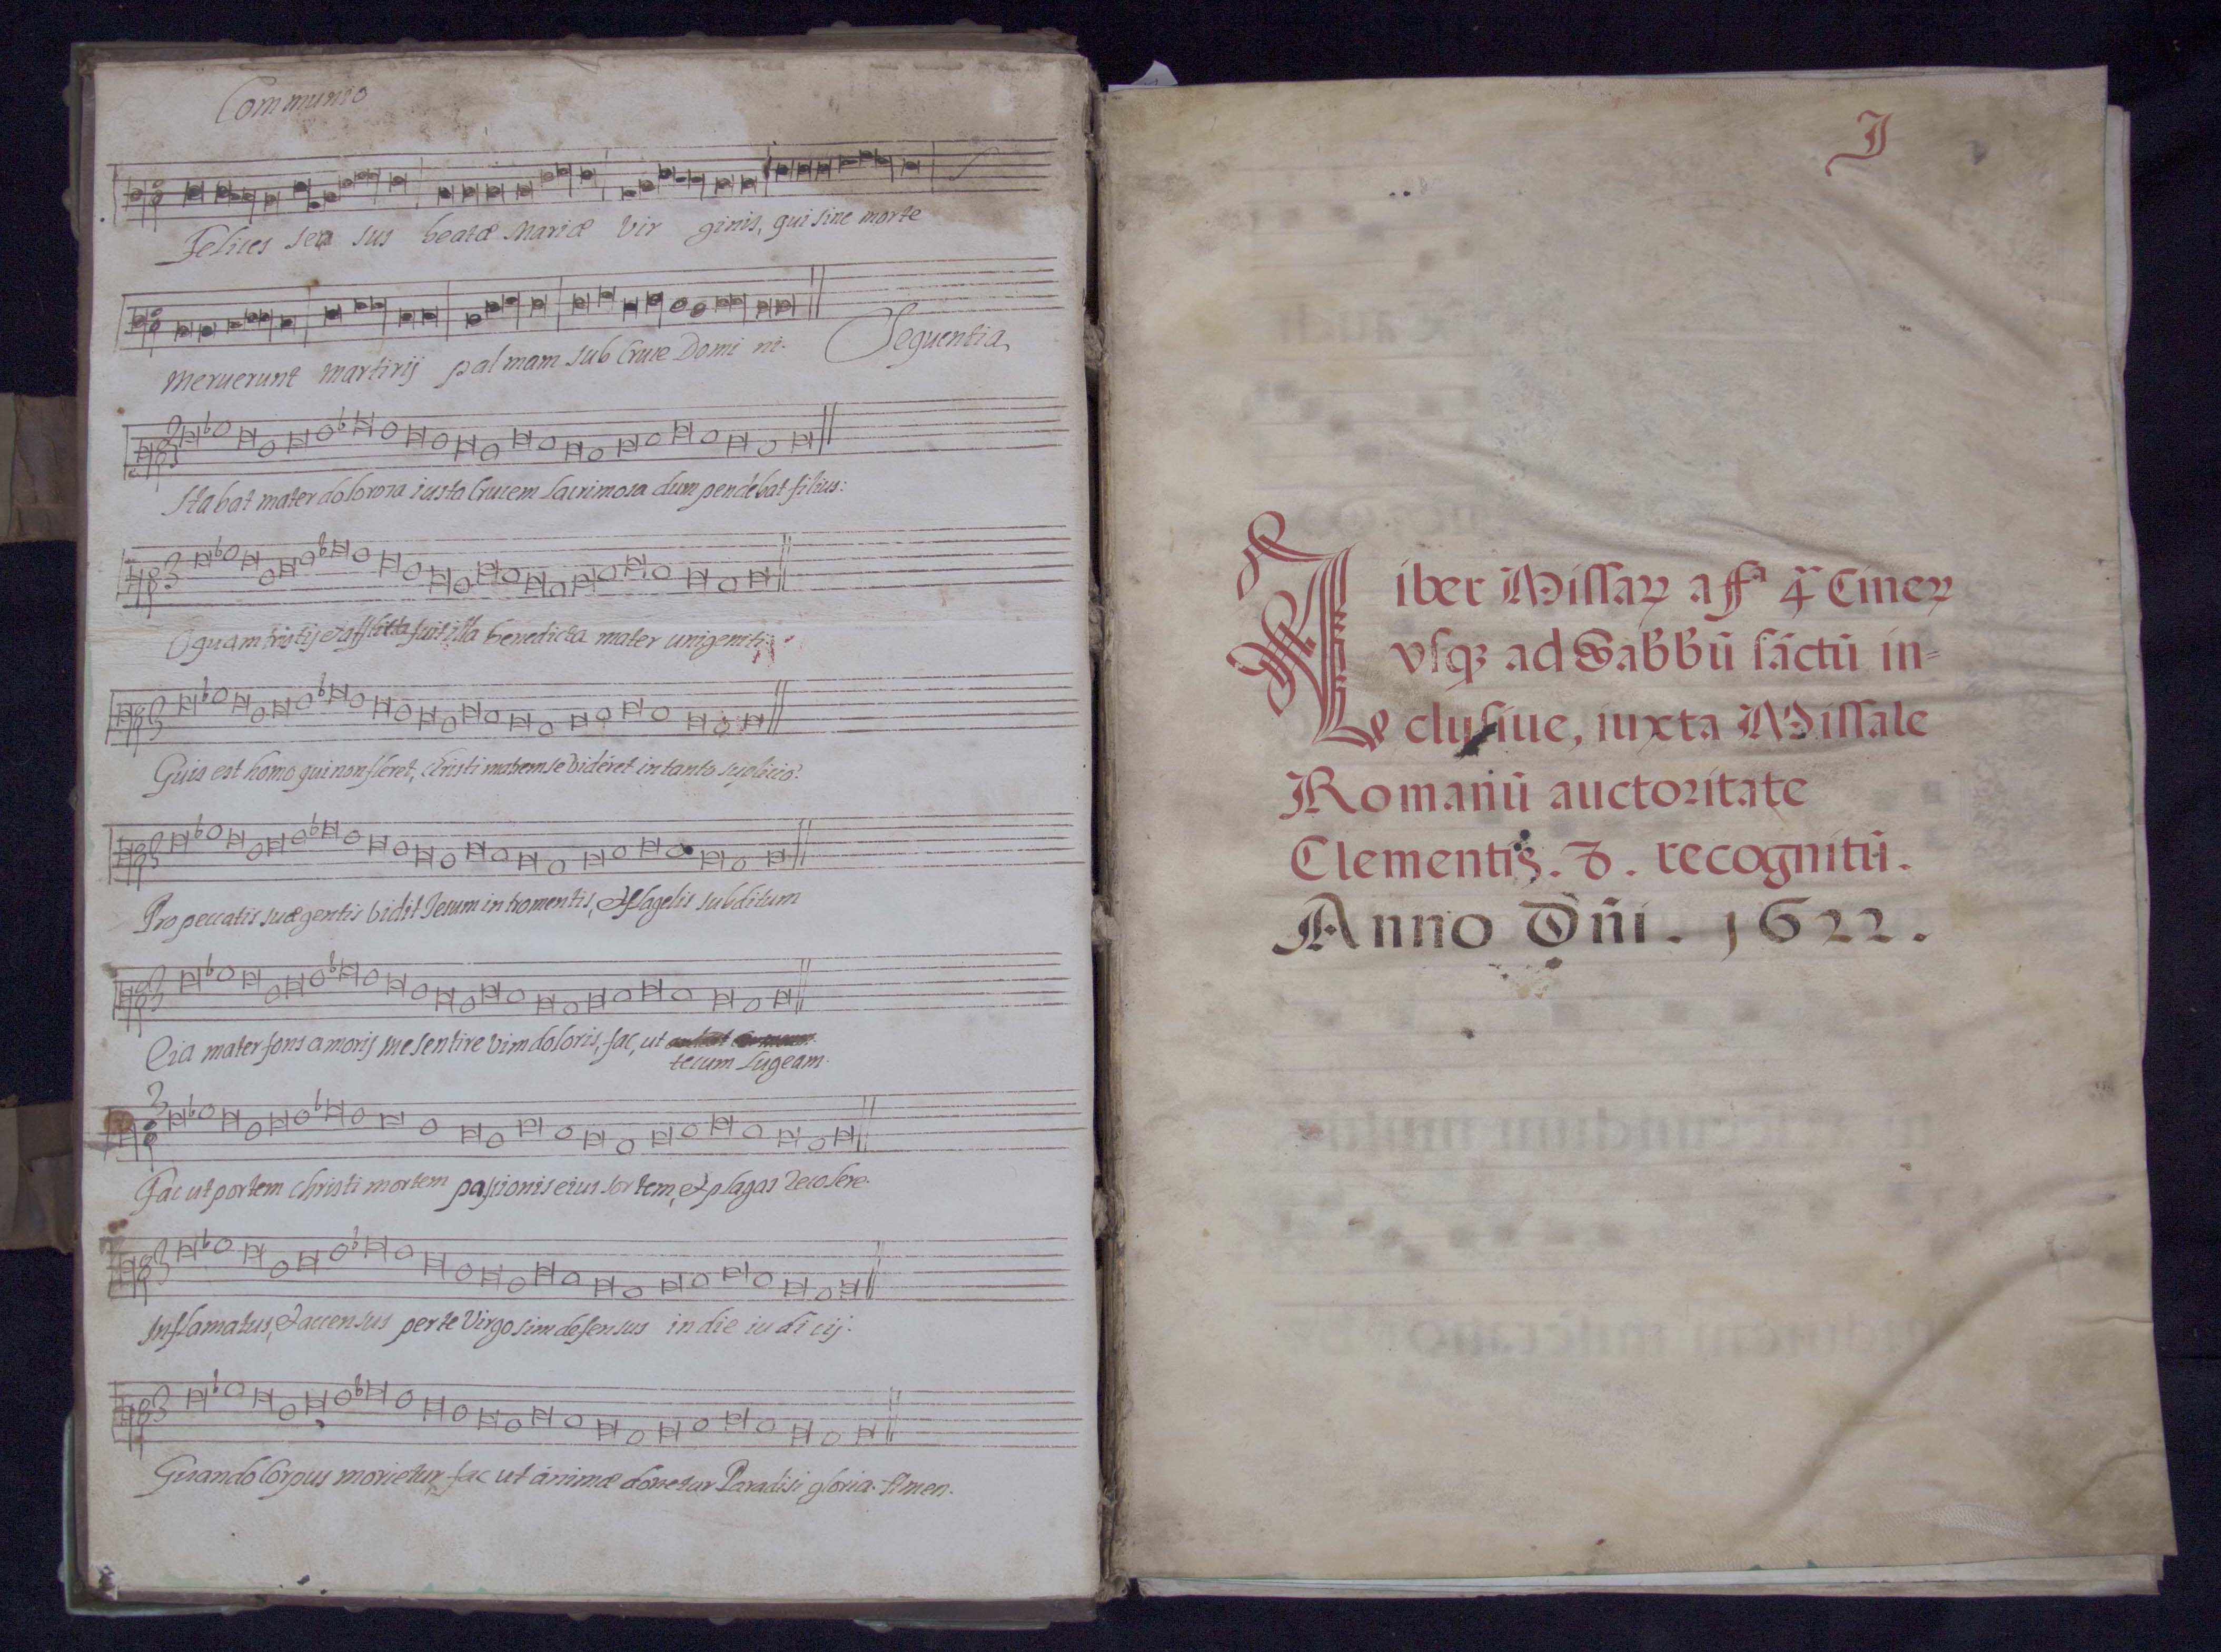 Communio
Felices sen sus beatæ Mariæ Vir ginis, qui sine morte
meruerunt martirij pal mam sub Cruce Domi ni.
Sequentia
Stabat mater dolorosa iusta Crucem Lacrimosa dum pendebat filius:
O quam tristis et afflicta fuit illa benedicta mater unigeniti:
Quis est homo qui non fleret, christi matrem se videret in tanto suplicio?
Pro peccatis suæ gentis vidit Iesum in tromentis, et flagelis subditum
Eia mater fons amoris me sentire vim doloris, fac, ut
tecum Lugeam.
Fac ut portem christi mortem passionis eius sortem, et plagas recolere.
Inflamatus, et accensus per te Virgo sim defensus in die iu di cij.
Quando Corpus morietur, fac ut animæ donetur Paradisi gloria. Amen.
I
Liber Missaꝝ a fª 4ª Cineꝝ
vsqꝫ ad Sabbū sāctū in=
clusiue, iuxta Missale
Romanū auctoritate
Clementis. 8. recognitū.
Anno Dñi. 1622.